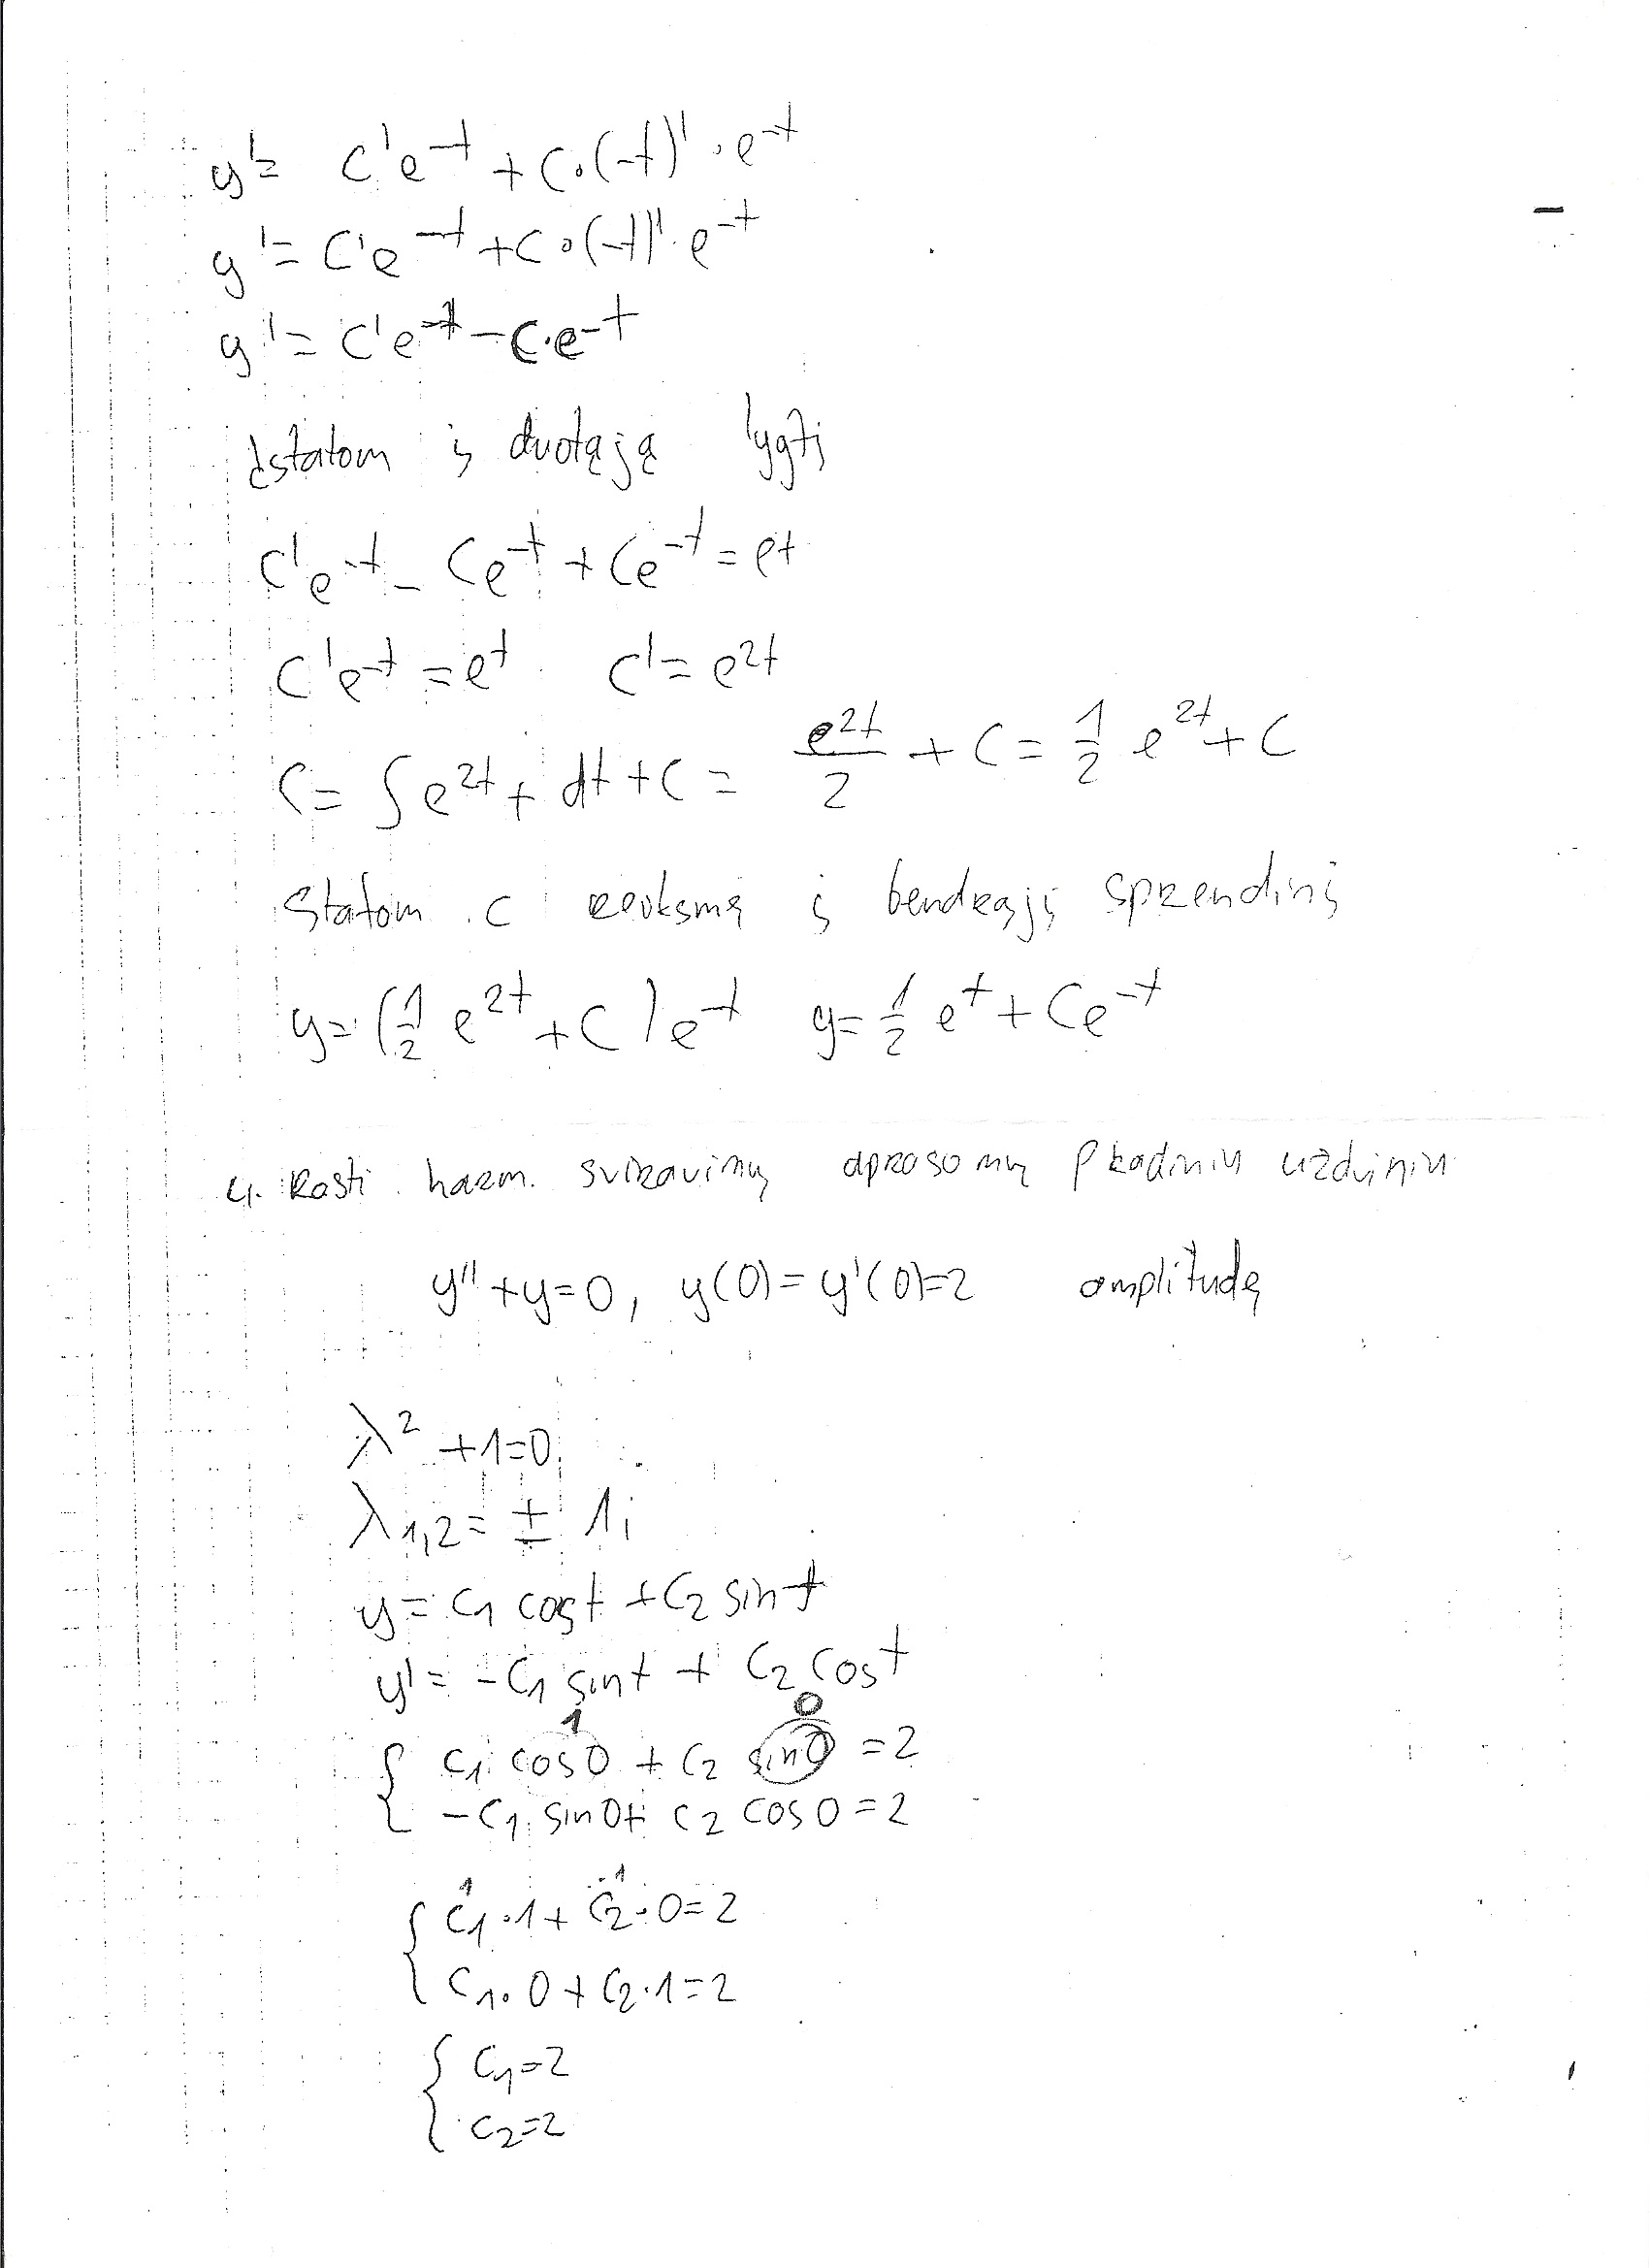 y' = C'e^-t + C·(-t)'·e^-t
y' = C'e^-t + C·(-t)'·e^-t
y' = C'e^-t - C·e^-t
Įstatom į duotąją lygtį
C'e^-t - Ce^-t + Ce^-t = et
C'e^-t = e^t C' = e^2t
C = ∫e^2t + dt + C = e^2t/2 + C = 1/2 e^2t + C
Statom C reiksmę į bendrąjį sprendinį
y = (1/2 e^2t + C)e^-t y = 1/2 e^t + Ce^-t
4. Rasti harm. sviravimų aprasomų pradiniu uzdviniu
y'' + y = 0, y(0) = y'(0) = 2 amplitudę
λ² + 1 = 0
λ1,2 = ± 1i
y = C1 cost + C2 sint
y' = -C1 sint + C2 cost
1 0
{ C1 cos0 + C2 sin0 = 2
-C1 sin0 + C2 cos0 = 2
{ C1·1 + C2·0 = 2
C1·0 + C2·1 = 2
{ C1 = 2
C2 = 2